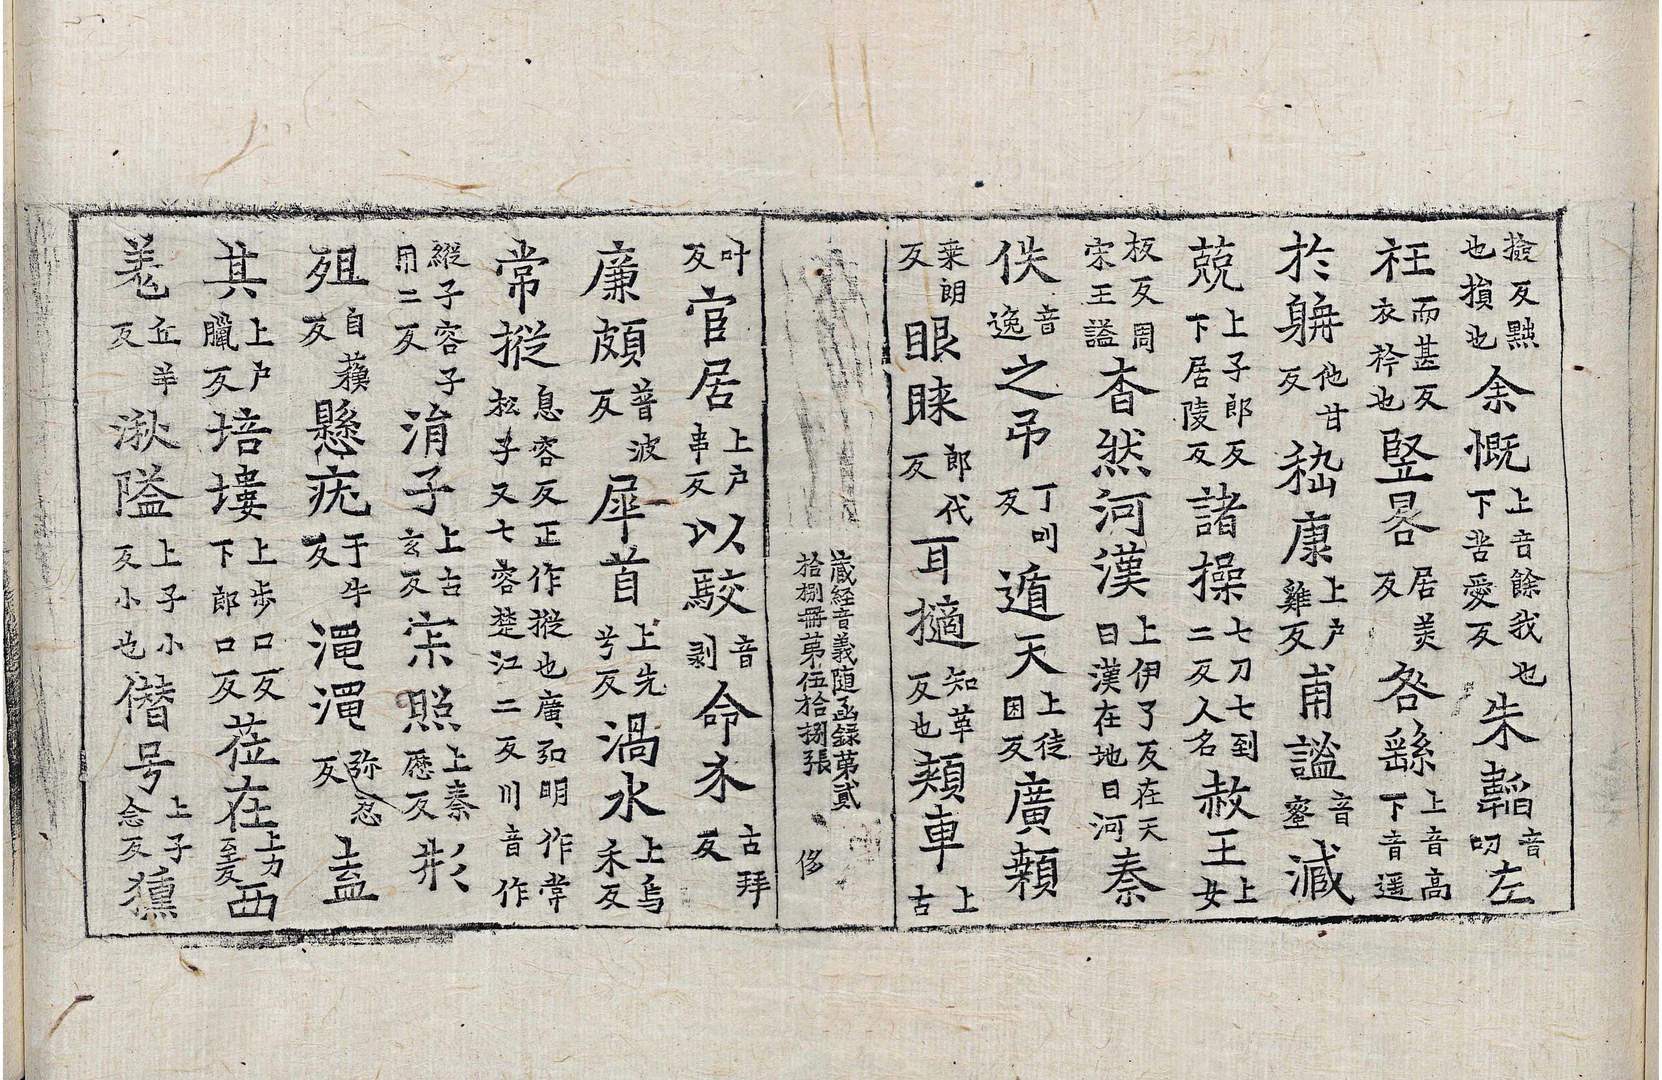 撿反㸃也損也余慨上音餘我也下苦愛反朱韜音叨左
衽而甚反衣衿也竪晷居美反咎繇上音高下音遥
於聃他甘反嵇康上戸雞反甫謐音蜜減
兢上子郎反下居陵反諸操七刀七到二反人名赦王上女
板反周宋王謚杳然河漢上伊了反在天曰漢在地曰河秦
佚音逸之弔丁叫反遁天上徒困反廣顙
桒朗反眼睞郎代反耳擿知革反也頬車上古
藏經音義随函録第貳拾捌冊第伍拾捌張 侈
叶反官居上戸串反以駮音剥命夲古拜反
廉頗音波反犀首上先兮反渦水上烏禾反
常摐息容反正作摐也廣弘明作常松子又七容楚江二反川音作
縱子容子用二反涓子上古玄反宋照上秦歷反形
殂自蘓反懸疣于牛反渑渑弥忍反盍
其上戸臘反培塿上歩口反下郎口反莅在上力至反西
羗丘羊反湫隘上子小反小也僭号上子念反獯